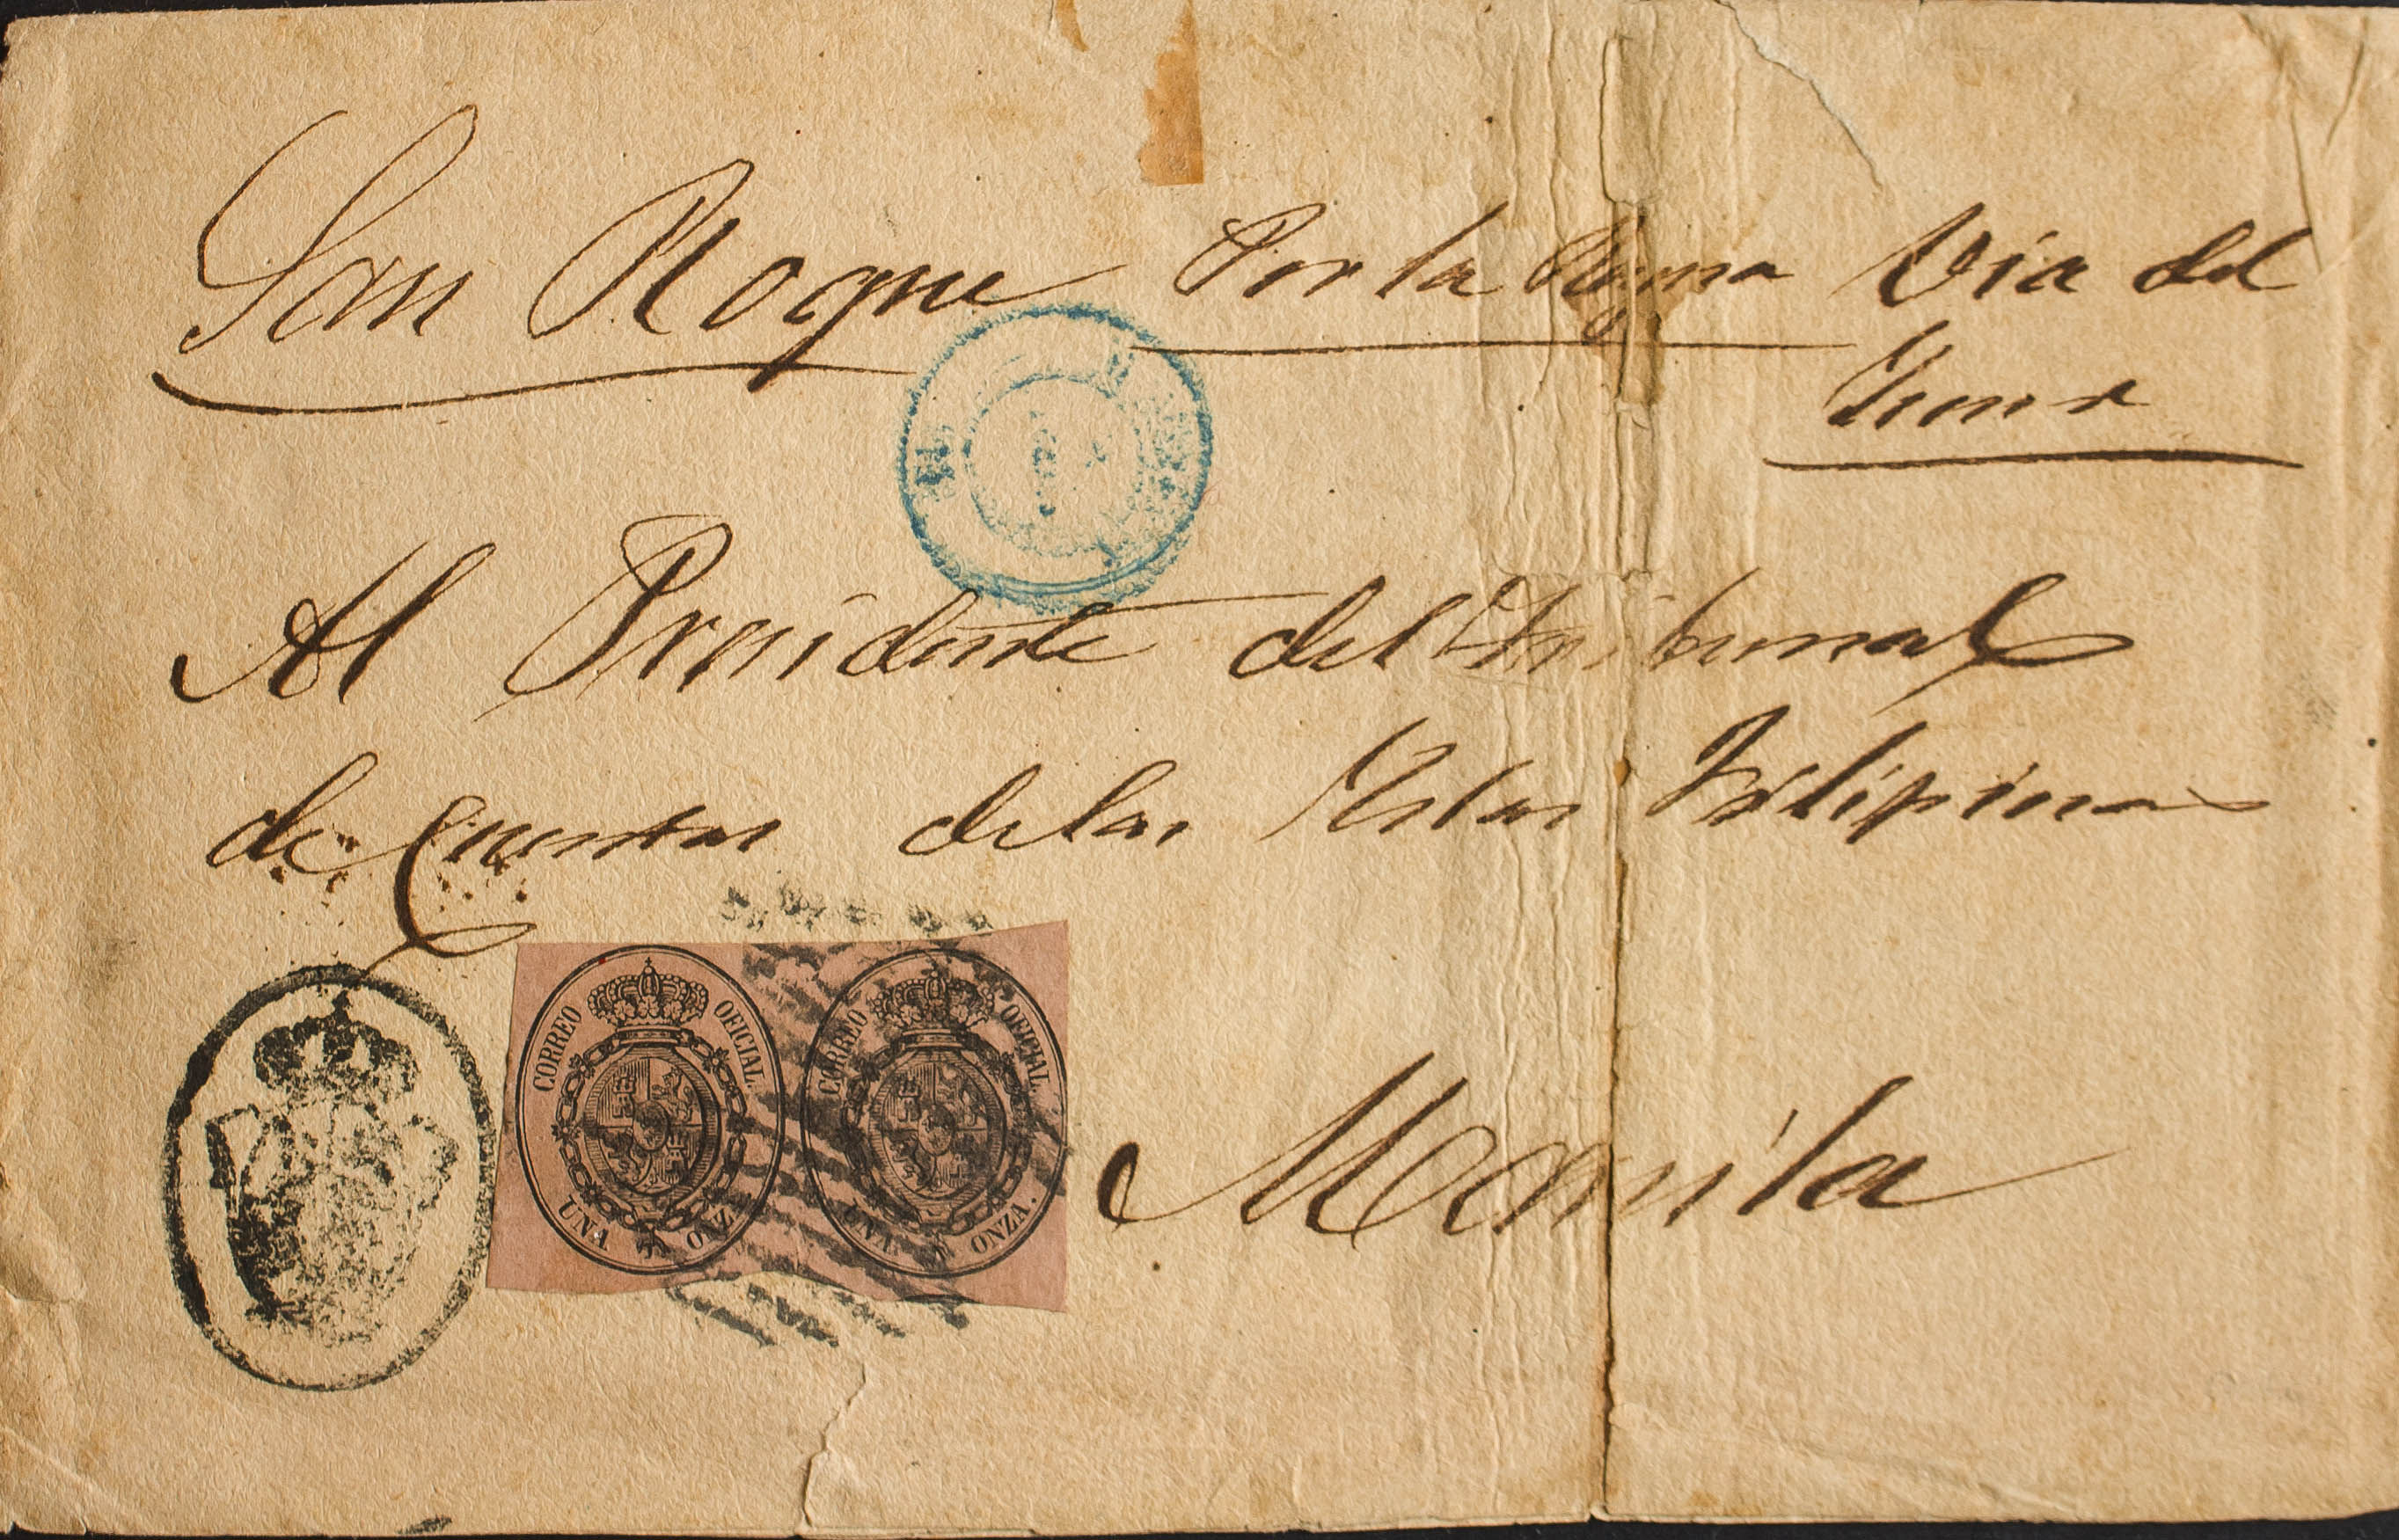 San Roque Por la Via del
Al Presidente del Tribunal
de Cuentas de las Yslas Filipinas
CORREO OFICIAL.
UNA ONZA.
CORREO OFICIAL.
UNA ONZA.
Manila